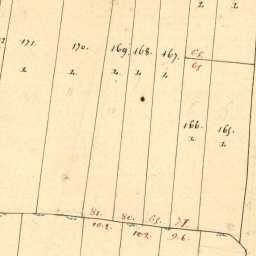 2 2
171. 170. 169. 168. 167. 65
65
2 2 2 2 2
166. 165.
2 2
81. 80. 65. 77
102. 102. 96.